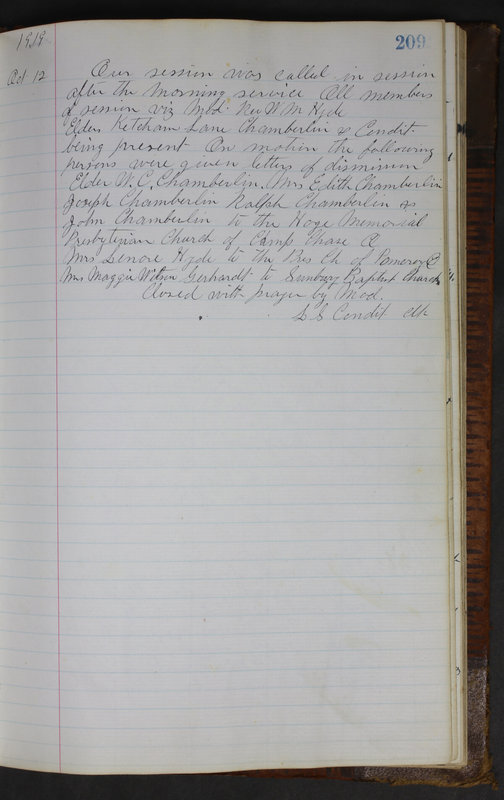 209
1919
Oct 12 Our session was called in session
after the morning service All members
of session viz Mod. Rev W M Hyde
Elders Ketcham Lane Chamberlin & Condit
being present On motion the following
persons were given letters of dismission
Elder W. C. Chamberlin. Mrs Edith Chamberlin
Joseph Chamberlin Ralph Chamberlin &
John Chamberlin to the Hoge Memorial
Presbyterian Church of Camp Chase O
Mrs Lenore Hyde to the Pres Ch of Pomeroy O
Mrs Maggie Wilson Gerhardt to Sunbury Baptist Church
Closed with prayer by Mod.
S S Condit Clk